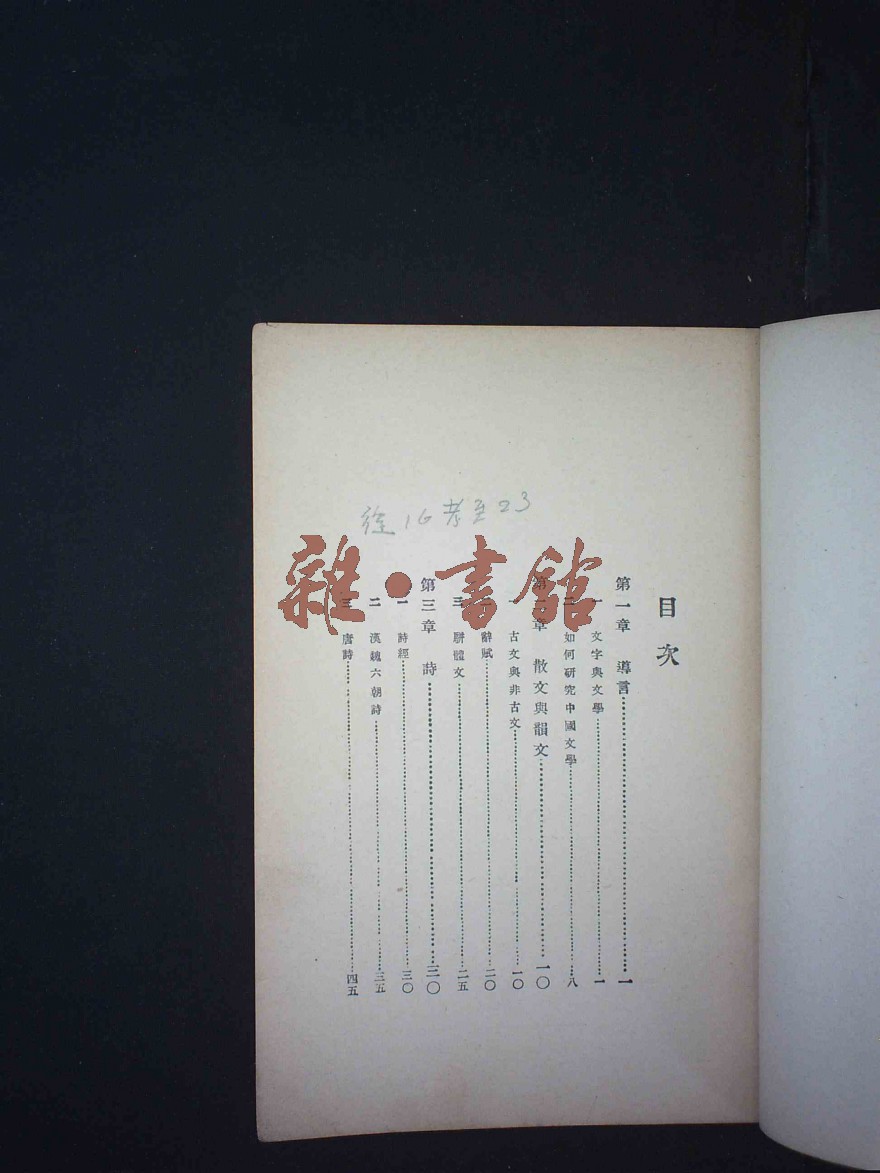 徐16考至23
雜·書館
目次
第一章 導言……一
一 文字與文學……一
二 如何研究中國文學……八
第二章 散文與韻文……一〇
一 古文與非古文……一〇
二 辭賦……二〇
三 駢體文……二五
第三章 詩……三〇
一 詩經……三〇
二 漢魏六朝詩……三五
三 唐詩……四五